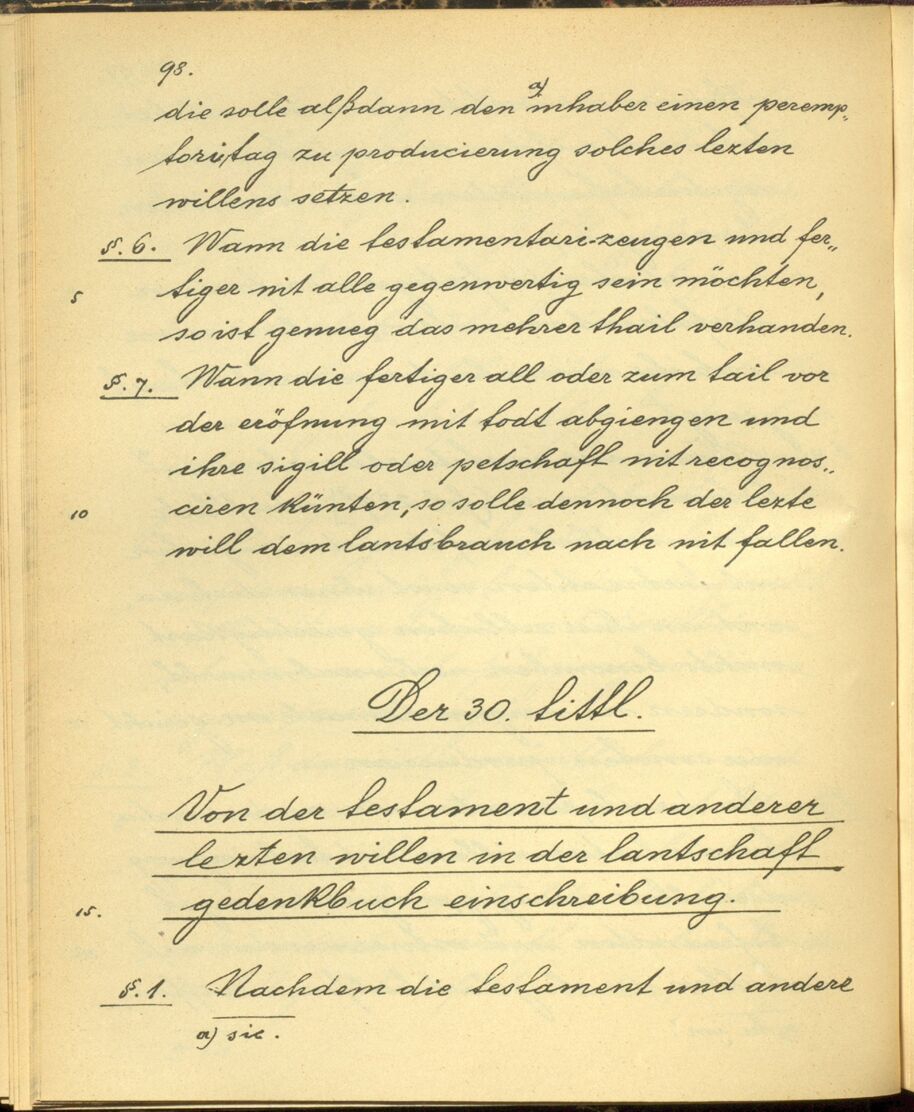 98.
die solle alßdann den a) inhaber einen peremp„
toritag zu producierung solches lezten
willens setzen.
§. 6. Wann die testamentari-zeugen und fer„
5 tiger nit alle gegenwertig sein möchten,
so ist genueg das mehrer thail verhanden.
§. 7. Wann die fertiger all oder zum tail vor
der eröfnung mit todt abgiengen und
ihre sigill oder petschaft nit recognos„
10 ciren künten, so solle dennoch der lezte
will dem lantsbrauch nach nit fallen.
Der 30. tittl.
Von der testament und anderer
lezten willen in der lantschaft
15. gedenkbuch einschreibung.
§. 1. Nachdem die testament und andere
a) sic.